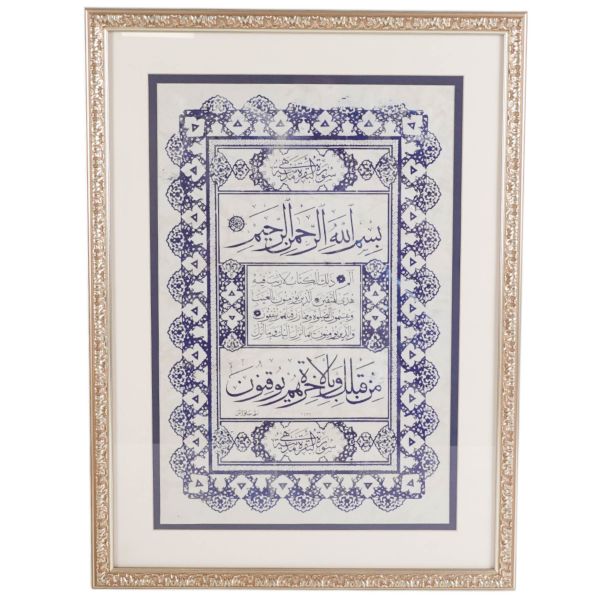 سورة البقرة مدنية
بسم الله الرحمن الرحيم
الم ذلك الكتاب لا ريب فيه
هدى للمتقين الذين يؤمنون بالغيب
ويقيمون الصلوة ومما رزقناهم ينفقون
والذين يؤمنون بما أنزل إليك وما أنزل
من قبلك وبالآخرة هم يوقنون
سورة البقرة مدنية